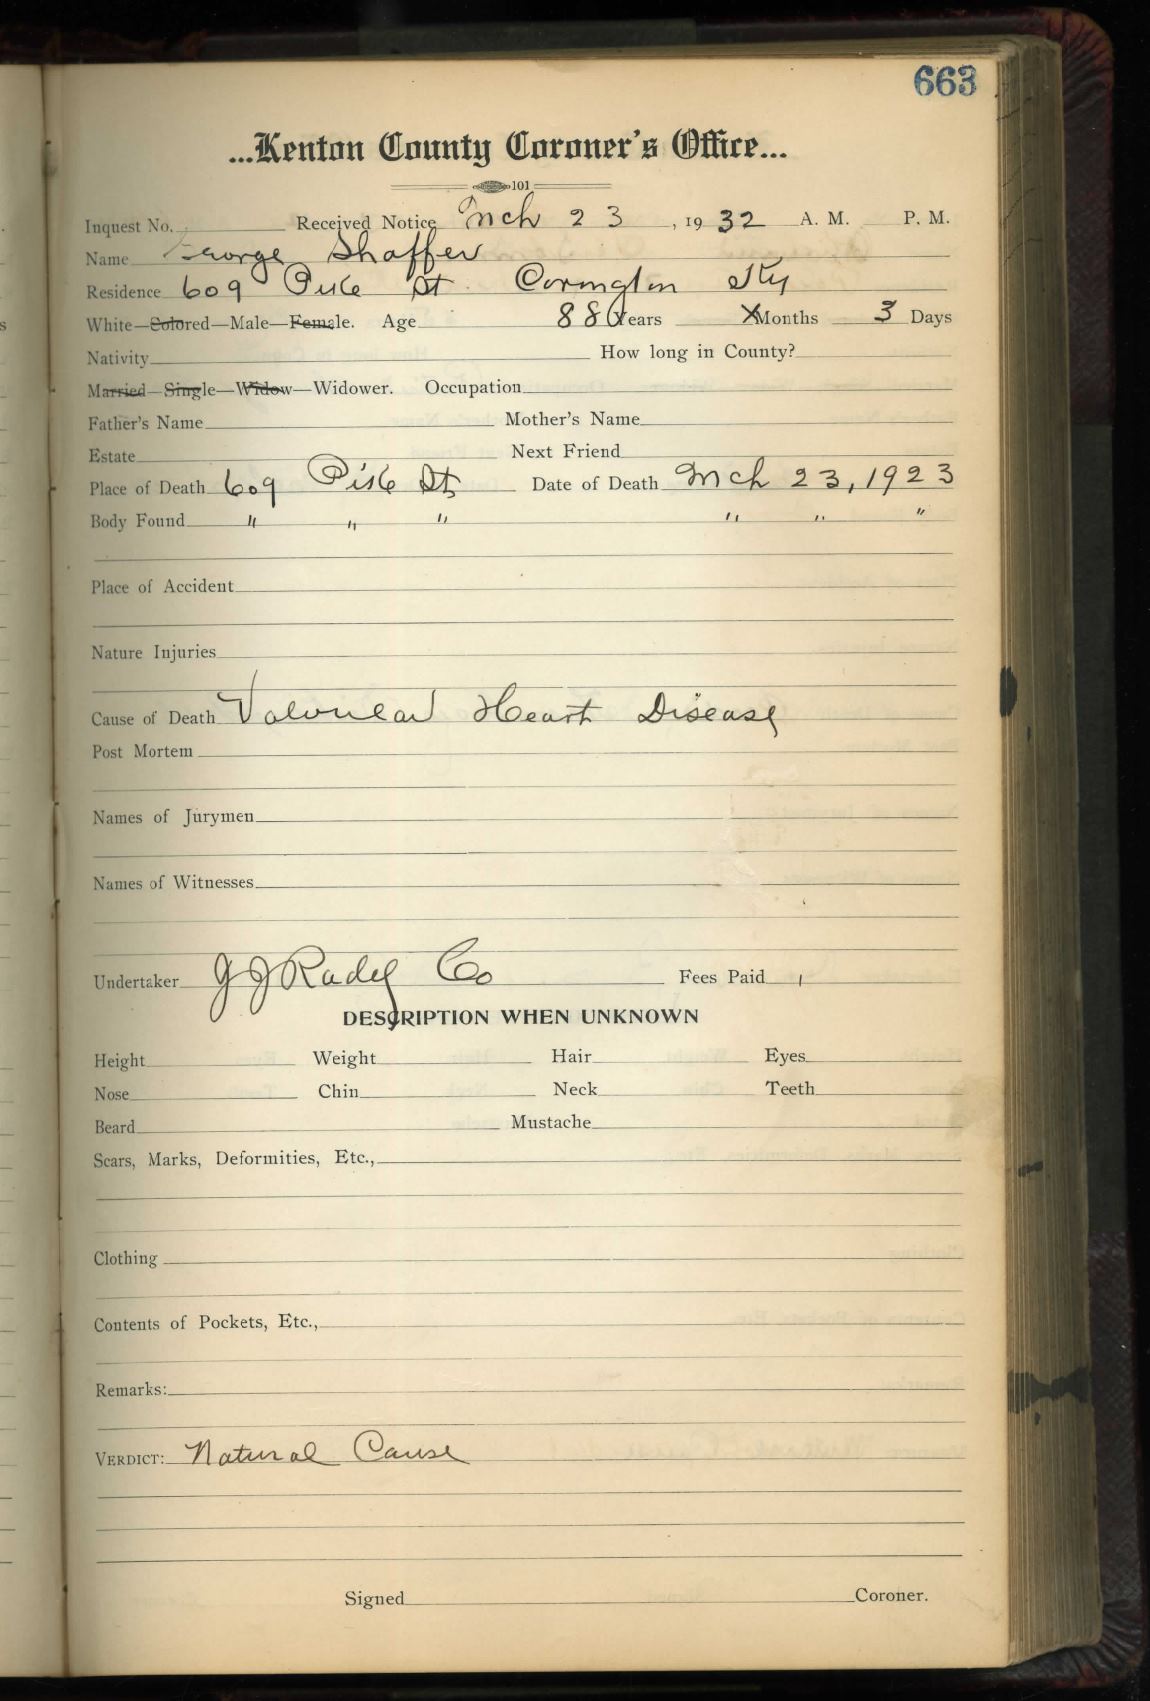 663
...Kenton County Coroner's Office...
101
Inquest No. Received Notice Mch 23, 1932 A. M. P. M.
Name George Shaffer
Residence 609 Pike St. Covington Ky
White—Colored—Male—Female. Age 88 Years X Months 3 Days
Nativity How long in County?
Married—Single—Widow—Widower. Occupation
Father's Name Mother's Name
Estate Next Friend
Place of Death 609 Pike St Date of Death Mch 23, 1923
Body Found " " " " " "
Place of Accident
Nature Injuries
Cause of Death Valvular Heart Disease
Post Mortem
Names of Jurymen
Names of Witnesses
Undertaker J J Radel Co Fees Paid
DESCRIPTION WHEN UNKNOWN
Height Weight Hair Eyes
Nose Chin Neck Teeth
Beard Mustache
Scars, Marks, Deformities, Etc.,
Clothing
Contents of Pockets, Etc.,
Remarks:
VERDICT: Natural Cause
Signed Coroner.